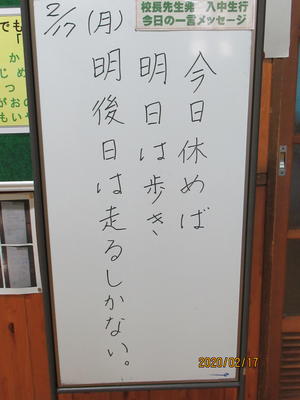 校長先生発 入中生行
今日の一言メッセージ
2/17(月)
今日休めば
明日は歩き
明後日は走るしかない。
2020/02/17